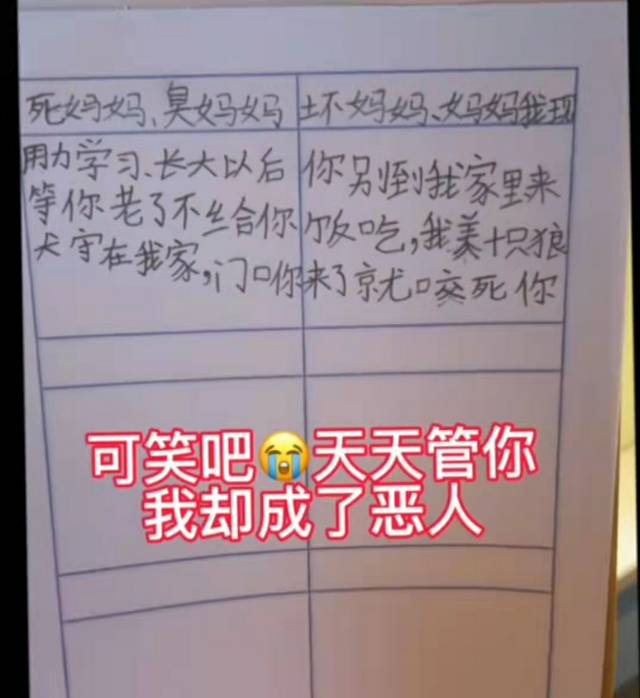 死妈妈、臭妈妈 坏妈妈、妈妈我现
用力学习、长大以后 你别到我家里来
等你老了不给你饭吃，我养十只狼
犬守在我家，门口你来了就咬死你
可笑吧😭天天管你
我却成了恶人